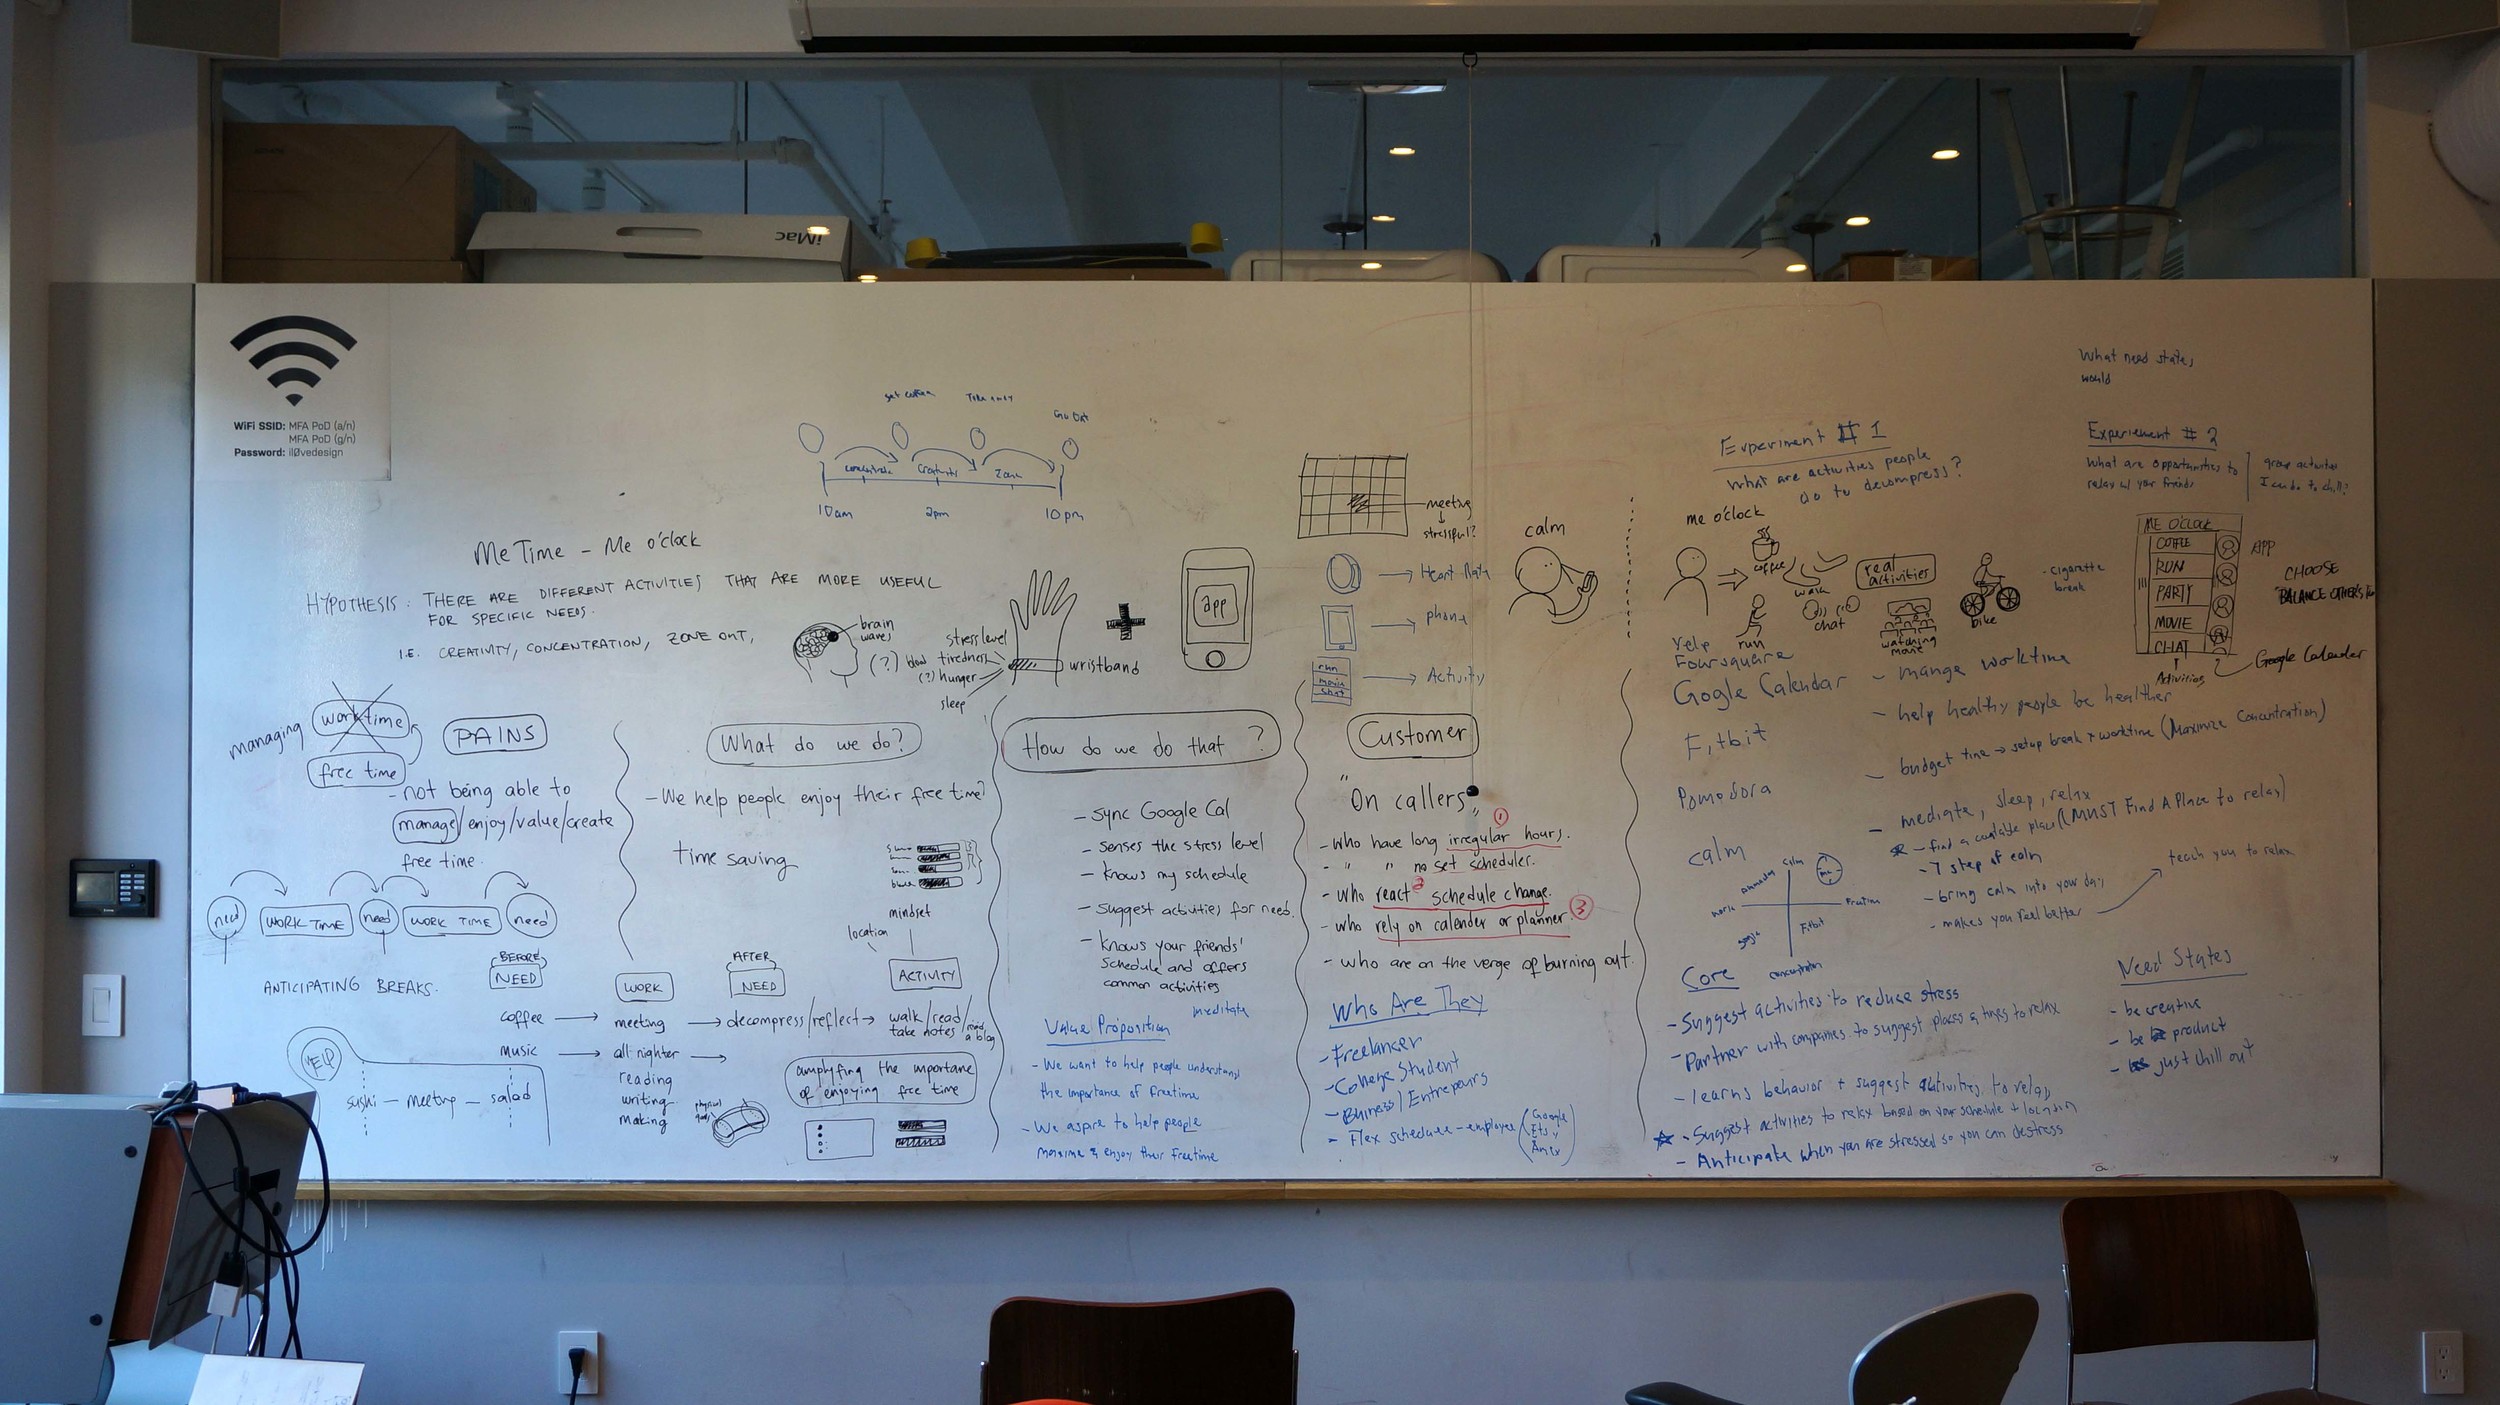 iMac
WiFi SSID: MFA PoD (a/n)
MFA PoD (g/n)
Password: il0vedesign
get coffee
Go Out
concentrate
Creativity
Zone
10am
2pm
10pm
Me Time - Me o'clock
HYPOTHESIS: THERE ARE DIFFERENT ACTIVITIES THAT ARE MORE USEFUL
FOR SPECIFIC NEEDS.
I.E. CREATIVITY, CONCENTRATION, ZONE OUT,
brain
waves
(?)
stress level
blood tiredness
(?) hunger
sleep
wristband
app
meeting
stressful?
Heart Rate
phone
run
movie
chat
Activity
calm
managing
worktime
free time
PAINS
- not being able to
manage/enjoy/value/create
free time.
need
WORK TIME
need
WORK TIME
need
ANTICIPATING BREAKS.
BEFORE
NEED
coffee
music
WORK
meeting
all nighter
reading
writing
making
AFTER
NEED
decompress/reflect
location
mindset
ACTIVITY
walk/read/
take notes
a blog
YELP
sushi - meetup - salad
amplyfing the importane
of enjoying free time
What do we do?
- We help people enjoy their free time?
time saving
How do we do that ?
- sync Google Cal
- senses the stress level
- knows my schedule
- suggest activities for need.
- knows your friends'
schedule and offers
common activities
meditate
Value Proposition
- We want to help people understand
the importance of freetime
- We aspire to help people
maxime & enjoy their freetime
Customer
"On callers"
1
- who have long irregular hours.
- " " no set scheduler.
2
- who react schedule change.
- who rely on calender or planner.
3
- who are on the verge of burning out.
Who Are They
- Freelancer
- College Student
- Business/Entrepours
- Flex schedule - employee (Google
Etsy
Amex)
Experiment # 1
What are activities people
do to decompress?
me o'clock
coffee
walk
real
activities
run
chat
watching
movie
bike
- cigarette
break
Yelp
Foursquare
Gogle Calendar - mange worktime
Fitbit
- help healthy people be healther
Pomodora
- budget time → setup break + worktime (Maximize Concentration)
calm
- mediate, sleep, relax
(MUST Find A Place to relax)
- 7 step of calm
- bring calm into your day
- makes you feel better
teach you to relax
calm
me
work
Freetime
google
Fitbit
concentration
Core
- Suggest activities to reduce stress
- Partner with companies to suggest places & times to relax
- learns behavior + suggest activities to relax
- Suggest activities to relax based on your schedule + location
- Anticipate when you are stressed so you can destress
What need states
would
Experiement # 2
What are opportunities to
relax w/ your friends
group activities
I can do to chill?
ME O'CLOCK
COFFEE
RUN
PARTY
MOVIE
CHAT
APP
Activities
Google Calender
CHOOSE
BALANCE OTHER'S
Need States
- be creative
- be product
- just chill out